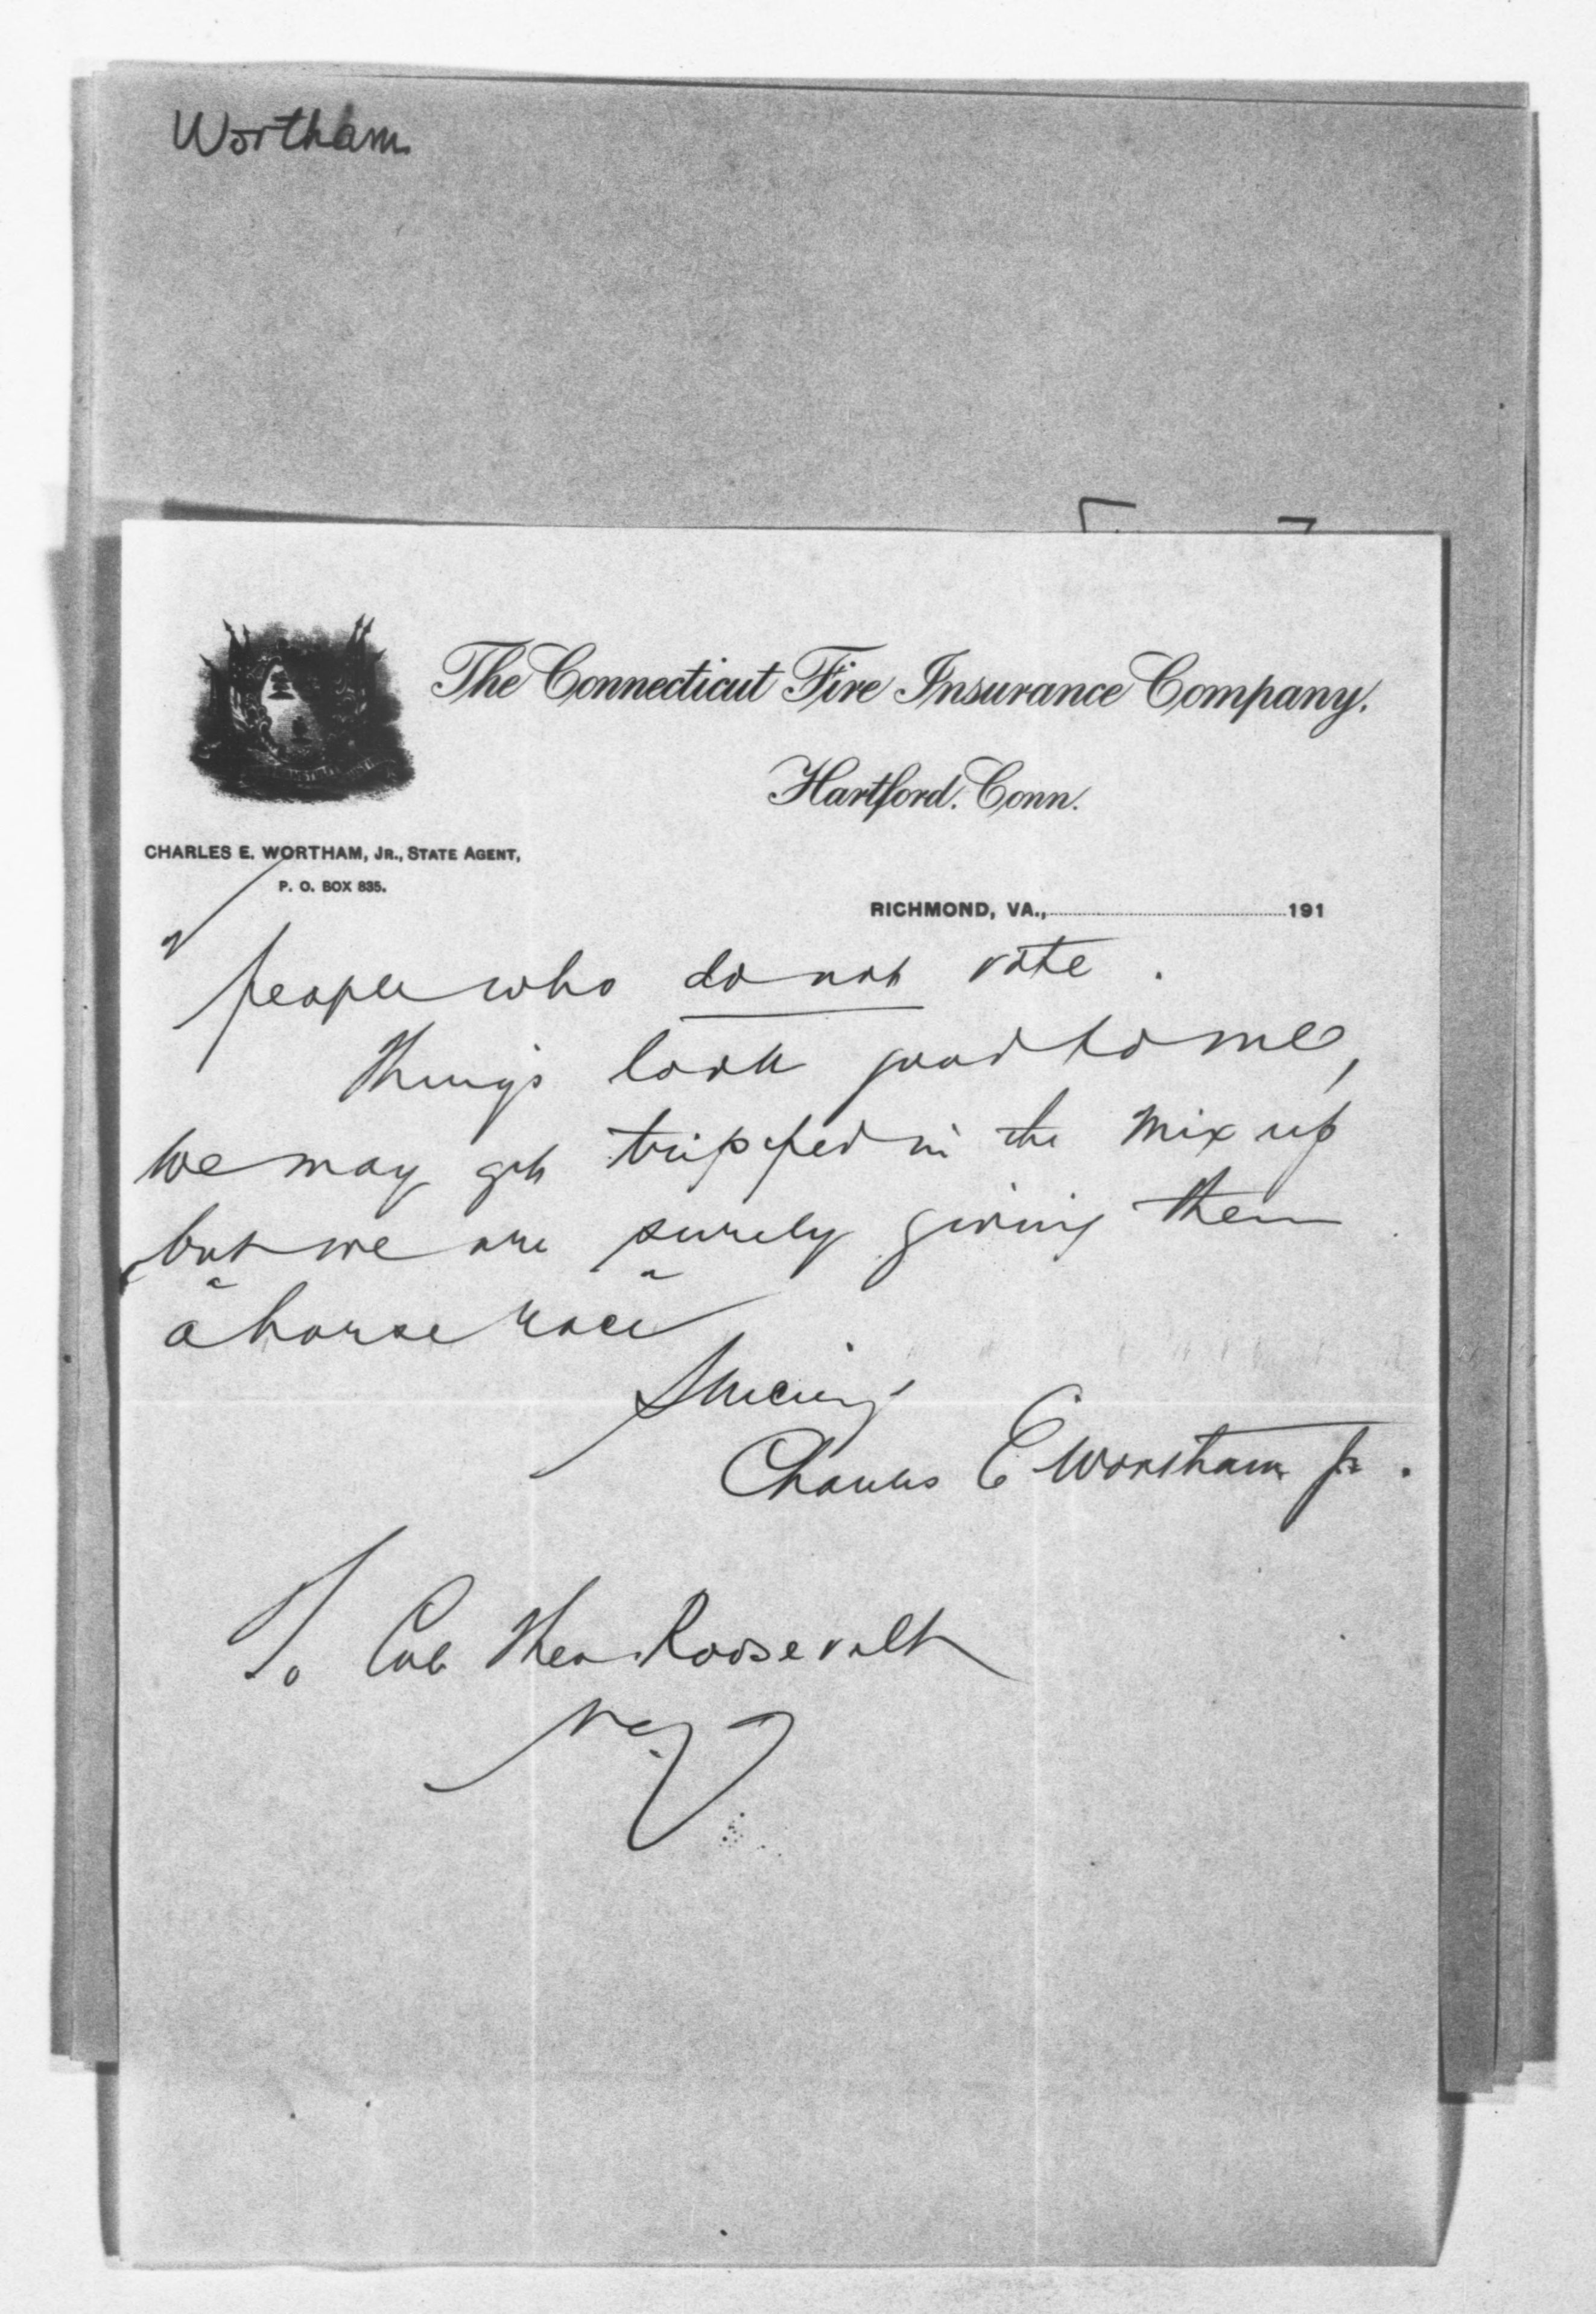 Wortham
The Connecticut Fire Insurance Company.
Hartford. Conn.
CHARLES E. WORTHAM, JR., STATE AGENT,
P. O. BOX 835.
RICHMOND, VA., 191
people who do not vote.
Things look good to me,
we may get tripped in the mix up
but we are surely giving them
a horse race
Sincerely
Charles E Wortham Jr.
To Col Theo. Roosevelt
N.Y